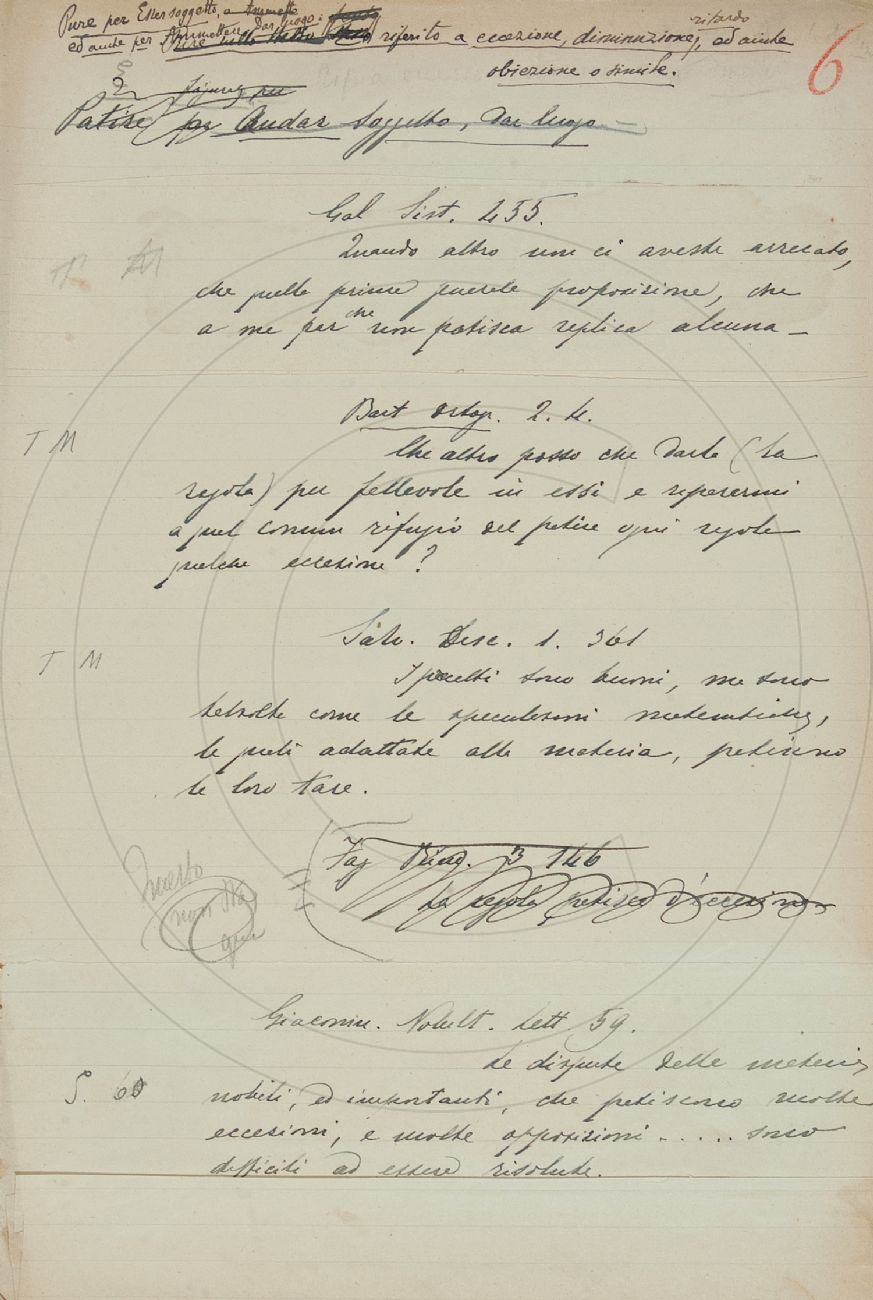 Pure per Esser soggetto, o ammette
ed anche per Ammettere, Dar luogo; riferito a eccezione, diminuzione, ritardo, ed anche
obiezione o simile.
6
Patire per Andar soggetto, Dar luogo
Gal Sist. 435.
Quando altro non ci aveste arrecato,
che quella prima puerile proposizione, che
a me par che non patisca replica alcuna
Bart Ortogr. 2. 4.
T M
Che altro posso che darla (la
regola) per fallevole in essi e ripararmi
a quel comun rifugio del patire ogni regola
qualche eccezione?
Salv. Disc. 1. 361
T M
I precetti sono buoni, ma sono
talvolta come le speculazioni matematiche,
le quali adattate alla materia, patiscono
le loro tare.
Fag Rim. 3 146
La regola patisce d'eccezione
Questo
non sta
qui
Giacomin. Nobilt. Lett 59.
Le dispute delle materie
S. 60
nobili, ed importanti, che patiscono molte
eccezioni, e molte opposizioni ..... sono
difficili ad essere risolute.